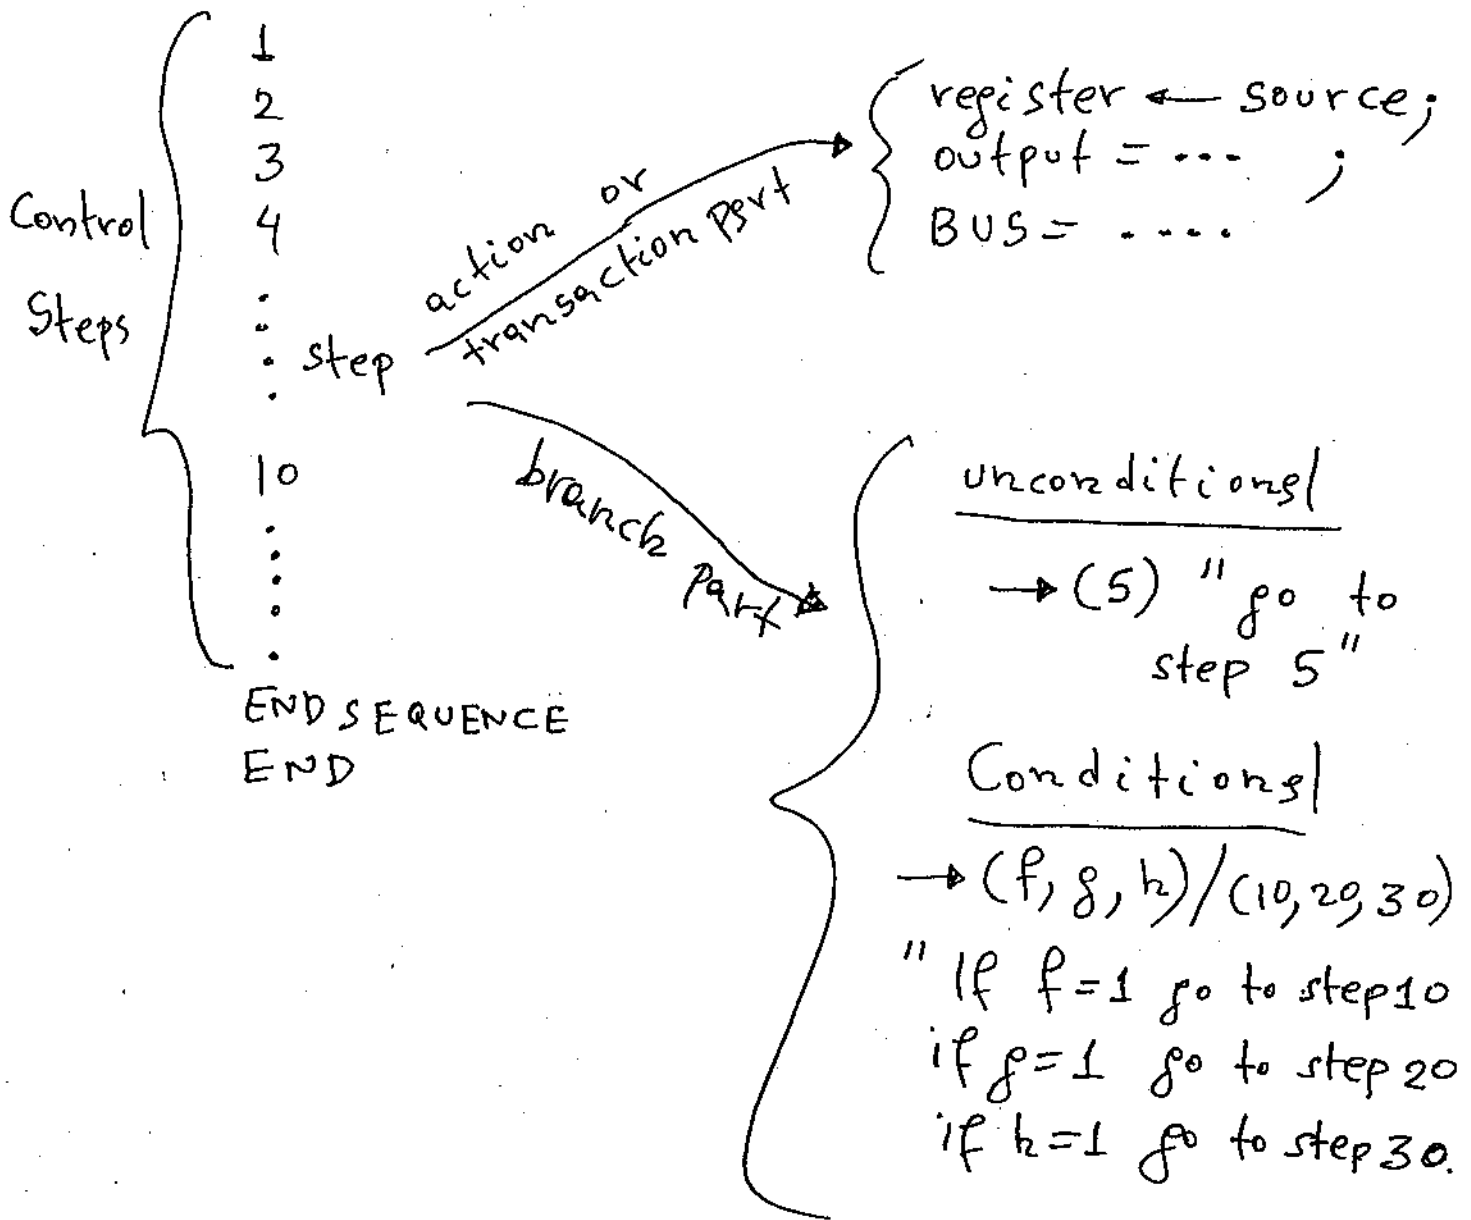 Control
Steps
1
2
3
4
step
10
ENDSEQUENCE
END
action or
transaction part
register ← source;
output = ... ;
BUS = ....
branch part
unconditional
→ (5) "go to
step 5"
Conditional
→ (f, g, h)/(10,20,30)
"If f=1 go to step10
if g=1 go to step 20
if h=1 go to step 30.